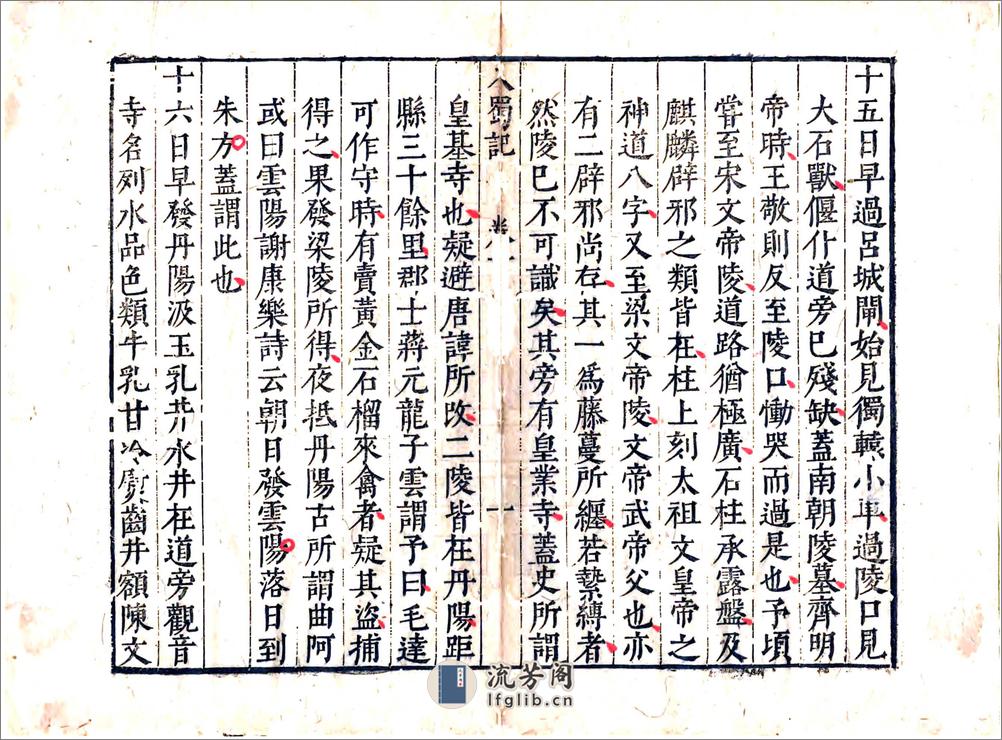 十五日早過呂城閘始見獨轅小車過陵口見
大石獸偃仆道旁已殘缺蓋南朝陵墓齊明
帝時王敬則反至陵口慟哭而過是也予頃
嘗至宋文帝陵道路猶極廣石柱承露盤及
麒麟辟邪之類皆在柱上刻太祖文皇帝之
神道八字又至梁文帝陵文帝武帝父也亦
有二辟邪尚存其一為藤蔓所纏若縶縛者
然陵已不可識矣其旁有皇業寺蓋史所謂
入蜀記 卷一 一
皇基寺也疑避唐諱所改二陵皆在丹陽距
縣三十餘里郡士蔣元龍子雲謂予曰毛達
可作守時有賣黃金石榴來禽者疑其盜捕
得之果發梁陵所得夜抵丹陽古所謂曲阿
或曰雲陽謝康樂詩云朝日發雲陽落日到
朱方蓋謂此也
十六日早發丹陽汲玉乳井水井在道旁觀音
寺名列水品色類牛乳甘冷熨齒井額陳文
流芳阁
lfglib.cn